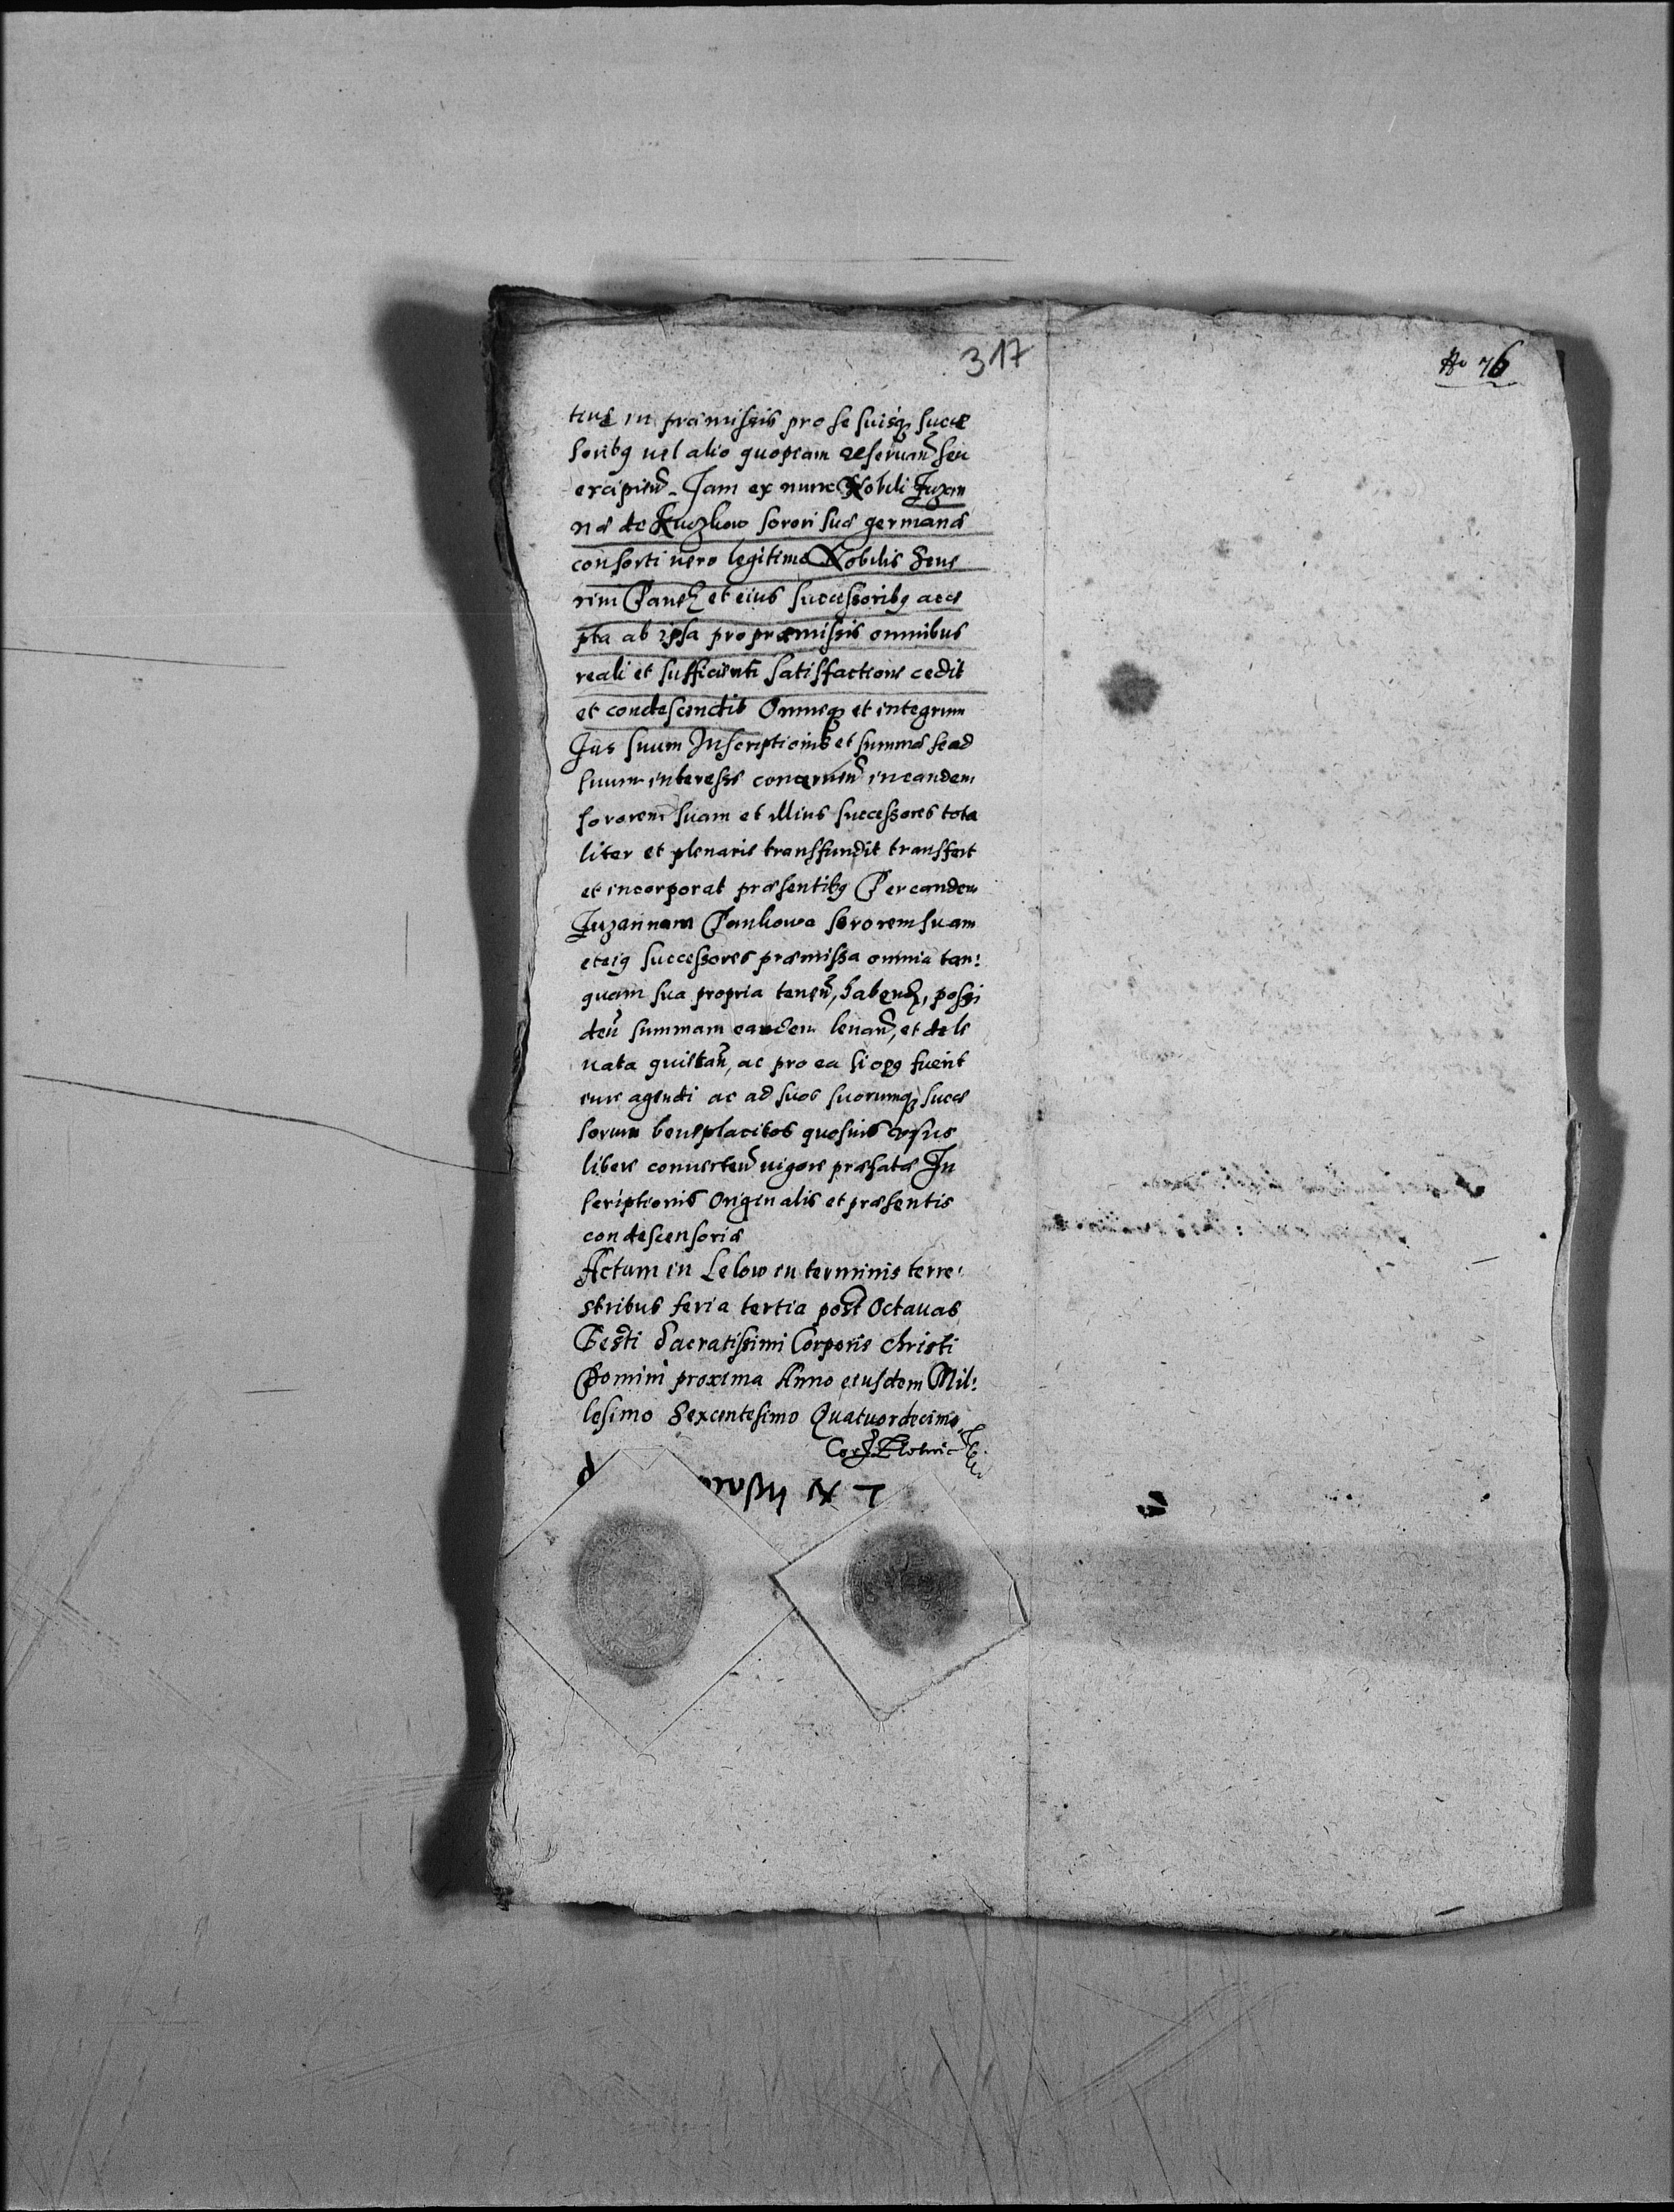 317
No 76
tius in præmissis pro se suisq, succe
soribq vel alio quopiam reseruan̄ seu
excipien̄. Jam ex nunc Nobili Zuzan
næ de Kuczkow sorori suæ germanæ
consorti vero legitimæ Nobilis Seue
rini Panek et eius successoribq acce
pta ab ipsa pro præmissis omnibus
reali et sufficienti satisfactione cedit
et condescendit Omneq, et integrum
Jus suum Inscriptionis et summæ se ad
suum interesse concernen̄ in eandem
sororem suam et illius successores tota
liter et plenarie transfundit transfert
et incorporat præsentibq Per eandem
Zuzannam Pankowa sororem suam
et eiq successores præmissa omnia tan:
quam sua propria tenen̄, habend, possi
den̄ summam eandem leuan̄, et de le
uata quittan̄, ac pro ea si opq fuerit
iure agendi ac ad suos suorumq, succe
sorum beneplacitos quosuis vsus
libere conuerten̄ vigore præfatæ In
scriptionis Originalis et præsentis
condescensoriæ
Actum in Lelow in terminis terre:
stribus feria tertia post Octauas
Festi Sacratissimi Corporis Christi
Domini proxima Anno eiusdem Mil:
lesimo Sexcentesimo Quatuordecimo